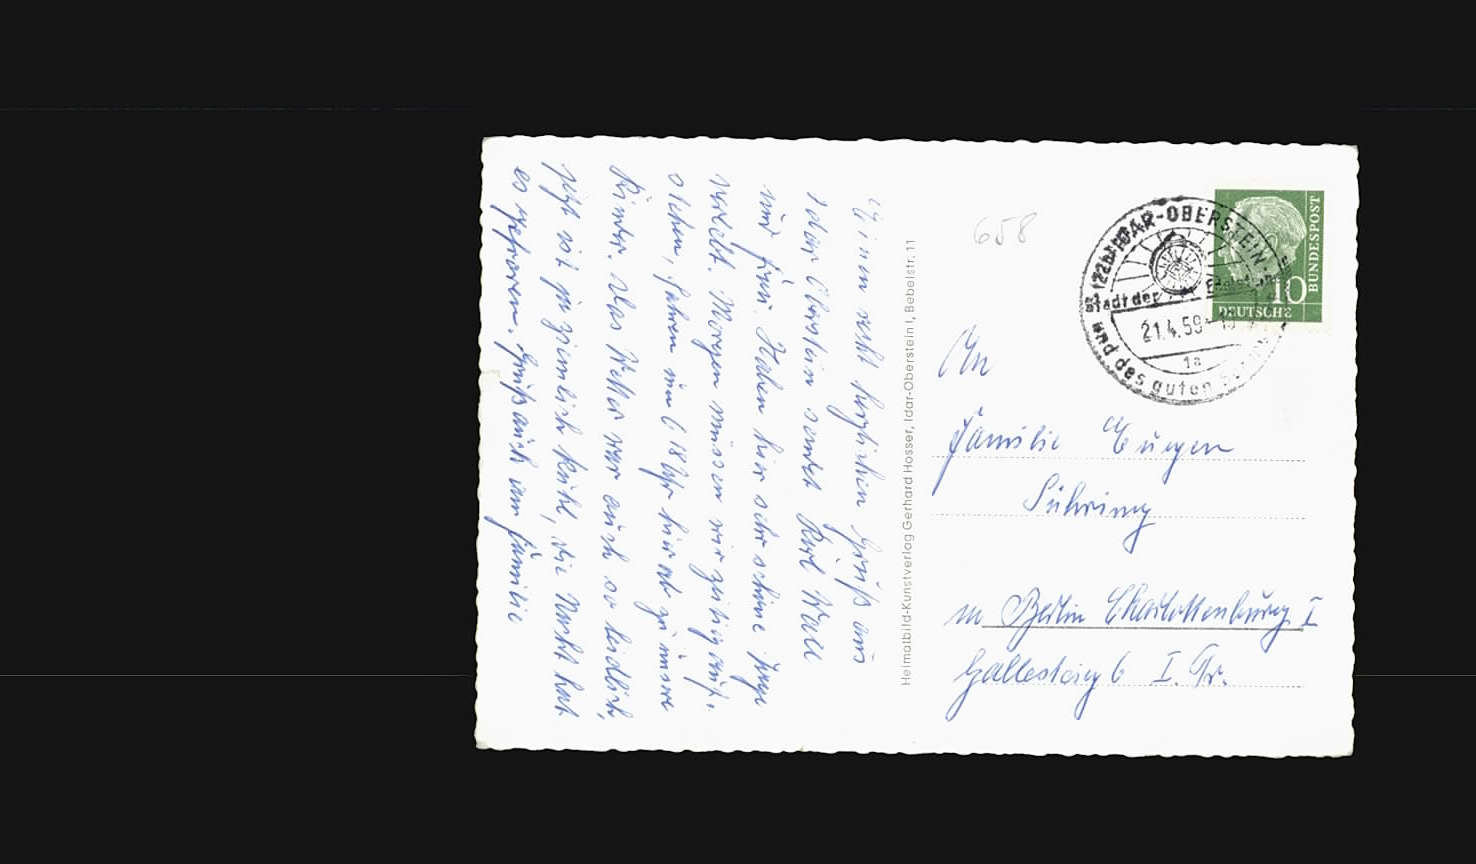 Einen recht herzlichen Gruß aus
Idar Oberstein sendet Karl Wall
und Frau. Haben hier sehr schöne Tage
verlebt. Morgen müssen wir zeitig auf,
stehen, fahren um 6 18 Uhr hier ab zu unsere
Kinder. Das Wetter war auch so leidlich,
jetzt ist ja ziemlich kühl, die Nacht hat
es gefroren. Gruß auch an Familie
Heimatbild-Kunstverlag Gerhard Hosser, Idar-Oberstein I, Bebelstr. 11
658
(22b) IDAR-OBERSTEIN
Stadt der Edelsteine
21.4.59
1a
und des guten
10
DEUTSCHE
BUNDESPOST
An
Familie Eugen
Sühring
in Berlin Charlottenburg I
6 I. Tr.